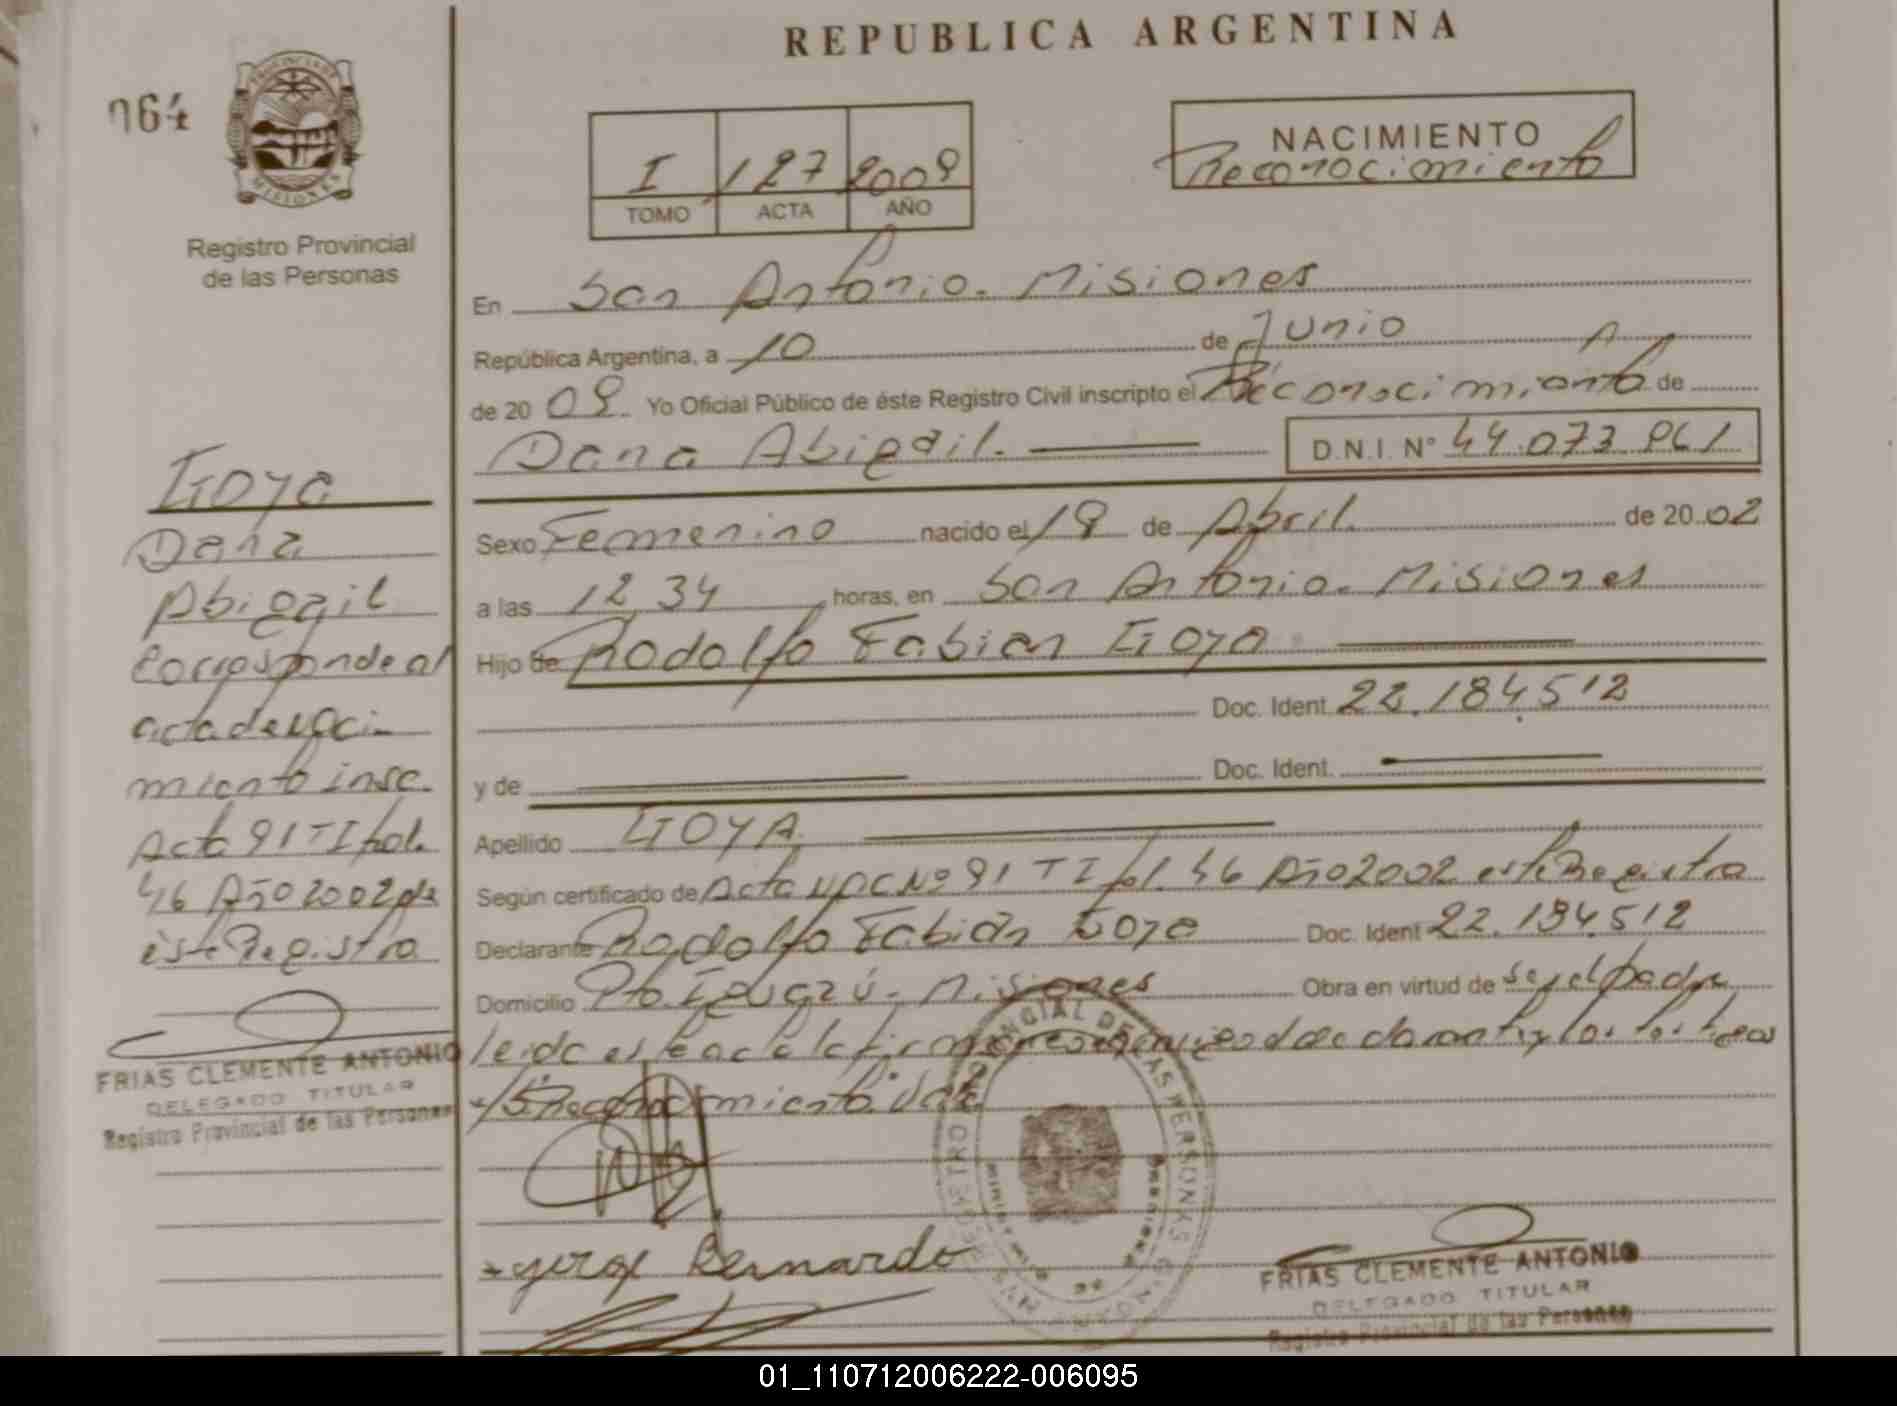 REPUBLICA ARGENTINA
064
PROVINCIA DE
MISIONES
Registro Provincial
de las Personas
I 127 2009
TOMO ACTA AÑO
NACIMIENTO
Reconocimiento
En San Antonio. Misiones
República Argentina, a 10 de Junio
de 20 09. Yo Oficial Público de éste Registro Civil inscripto el Reconocimiento de
Dana Abigail. D.N.I. Nº 44.073.861
Sexo Femenino nacido el 19 de Abril. de 20 02
a las 12,34 horas, en San Antonio. Misiones
Hijo de Rodolfo Fabian Goya
Doc. Ident. 22.184.512
y de Doc. Ident.
Apellido GOYA
Según certificado de Acta Nº 91 T I fol. 46 Año 2002 este Registro
Declarante Rodolfo Fabián Goya Doc. Ident 22.184.512
Domicilio Pto. Iguazú. Misiones Obra en virtud de ser el padre
leída este acta la firman declarante y los testigos
Reconocimiento Vale
Jorge Bernardo
FRIAS CLEMENTE ANTONIO
DELEGADO TITULAR
Registro Provincial de las Personas
Goya
Dana
Abigail
Corresponde al
acta de naci-
miento insc.
Acta 91 T I fol.
46 Año 2002 de
este Registro
FRIAS CLEMENTE ANTONIO
DELEGADO TITULAR
Registro Provincial de las Personas
01_110712006222-006095